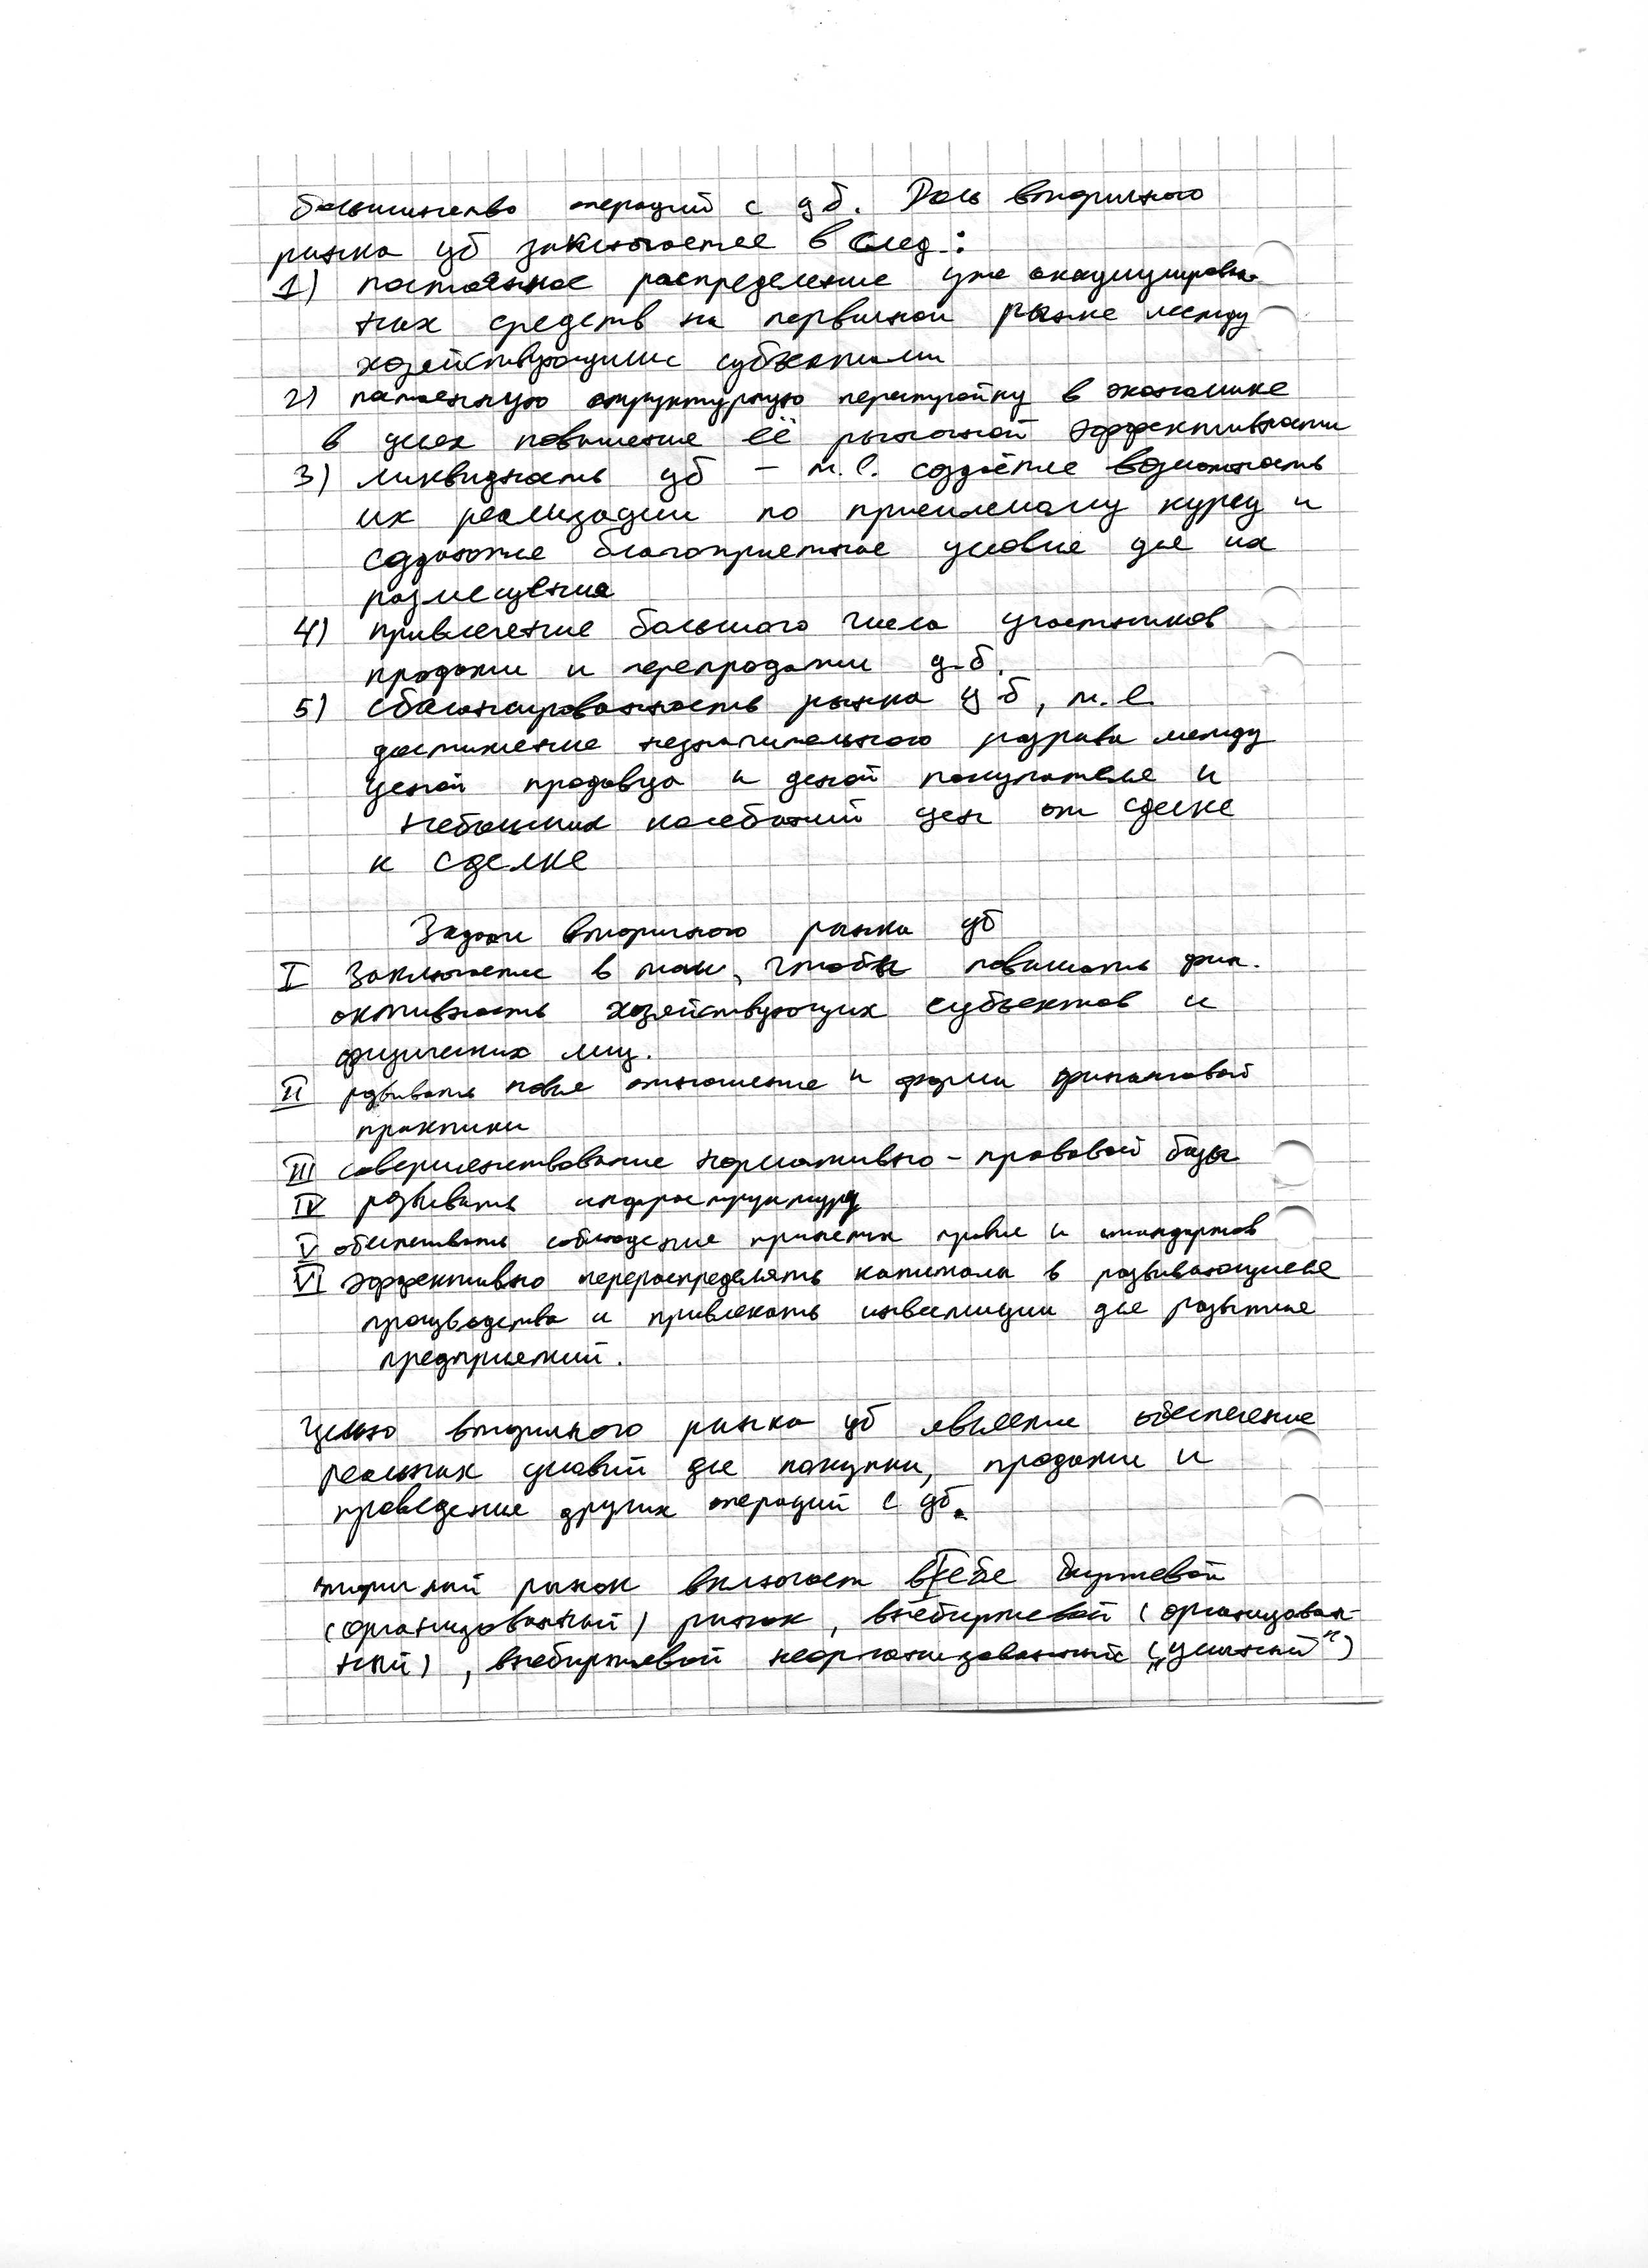 большинство операций с ц б. Роль вторичного
рынка ц б заключается в след.:
1) постоянное распределение уже аккумулирован-
ных средств на первичном рынке между
хозяйствующими субъектами
2) постоянную структурную перестройку в экономике
в целях повышения её рыночной эффективности
3) ликвидность ц б – т.е. создаётся возможность
их реализации по приемлемому курсу и
создаются благоприятные условия для их
размещения
4) привлечение большого числа участников
продажи и перепродажи ц.б.
5) сбалансированность рынка ц б, т.е.
достижение незначительного разрыва между
ценой продавца и ценой покупателя и
небольших колебаний цен от сделке
к сделке
Задачи вторичного рынка цб
I Заключается в том, чтобы повышать фин.
активность хозяйствующих субъектов и
физических лиц.
II развивать новые отношения и формы финансовой
практики
III совершенствование нормативно-правовой базы
IV развивать инфраструктуру
V обеспечивать соблюдение принятых правил и стандартов
VI эффективно перераспределять капиталы в развивающиеся
производства и привлекать инвестиции для развития
предприятий.
Целью вторичного рынка цб является обеспечение
реальных условий для покупки, продажи и
проведения других операций с цб.
вторичный рынок включает в себя биржевой
(организованный) рынок, внебиржевой (организован-
ный), внебиржевой неорганизованный („уличный")